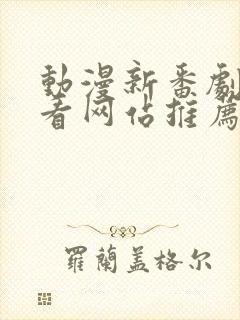 動漫新番劇
看网站推薦
羅蘭盖格尔